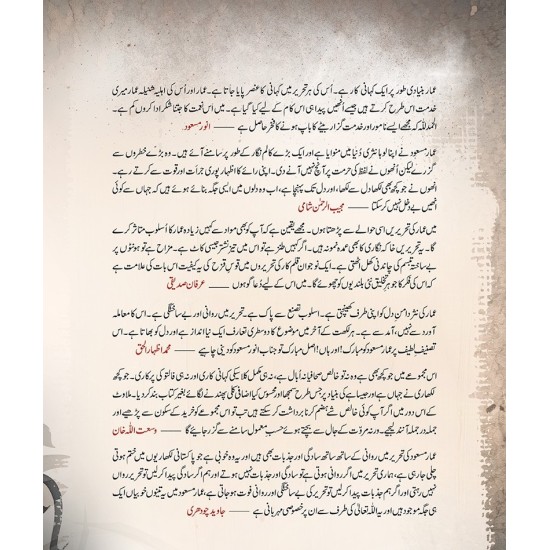 عمار بنیادی طور پر ایک کہانی کار ہے۔ اُس کی ہر تحریر میں کہانی کا عنصر پایا جاتا ہے۔ عمار اور اُس کی اہلیہ شنیلہ عمار میری
خدمت اس طرح کرتے ہیں جیسے اُنھیں پیدا ہی اس کام کے لیے کیا گیا ہے۔ میں اس نعمت کا جتنا شکر ادا کروں کم ہے۔
الحمد للہ کہ مجھے ایسے نامور اور خدمت گزار بیٹے کا باپ ہونے کا فخر حاصل ہے —— انور مسعود
عمار مسعود نے اپنا لوہا نثری دُنیا میں منوایا ہے اور ایک بڑے کالم نگار کے طور پر سامنے آئے ہیں۔ وہ بڑے خطروں سے
گزرے لیکن اُنھوں نے لفظ کی حرمت پر آنچ نہیں آنے دی۔ اپنی رائے کا اظہار پوری جرأت اور قوت سے کرتے رہے۔
اُنھوں نے جو کچھ بھی لکھا دل سے لکھا، اور دل تک پہنچا ہے، اب وہ دلوں میں ایسی جگہ بنائے ہوئے ہیں کہ جہاں سے کوئی
اُنھیں بے دخل نہیں کر سکتا —— مجیب الرحمٰن شامی
میں عمار کی تحریریں اسی حوالے سے پڑھتا ہوں۔ مجھے یقین ہے کہ آپ کو بھی مواد سے کہیں زیادہ عمار کا اسلوب متاثر کرے
گا۔ یہ تحریریں خاکہ نگاری کا بھی عمدہ نمونہ ہیں۔ اگر کہیں طنز ہے تو اس میں تیز نشتر جیسی کاٹ ہے۔ مزاح ہے تو ہونٹوں پر
بے ساختہ تبسم کی چاندنی کھل اُٹھتی ہے۔ ایک نوجوان قلم کار کی تحریروں میں قوسِ قزح کی یہ کیفیت اس بات کی علامت ہے
کہ اس کی فکر کا جوہرِ تخلیق نئی بلندیوں کو چھوئے گا۔ میں اس کے لیے دُعا گو ہوں —— عرفان صدیقی
عمار کی نثر دامنِ دل کو اپنی طرف کھینچتی ہے۔ اسلوب تصنع سے پاک ہے۔ تحریر میں روانی اور بے ساختگی ہے۔ اس کا معاملہ
آورد سے نہیں، آمد سے ہے۔ ہر لکھت کے آخر میں موضوع کا دو سطری تعارف ایک نیا انداز ہے اور دل کو بھاتا ہے۔ اس
تصنیفِ لطیف پر عمار مسعود کو مبارک! اور ہاں! اصل مبارک تو جناب انور مسعود کو دینی چاہیے —— محمد اظہار الحق
اس مجموعے میں جو کچھ بھی ہے وہ نہ تو خالص صحافیانہ اُبال ہے، نہ ہی مکمل کلاسیکی کہانی کاری اور نہ ہی فالتو کی پرکاری۔ جو کچھ
لکھاری نے جہاں ہے اور جیسا ہے کی بنیاد پر جس طرح سمجھا اور محسوس کیا اضافی کلی پھندنے لگائے بغیر کتاب بند کر دیا۔ ملاوٹ
کے اس دور میں اگر آپ کوئی خالص شے ہضم کرنا برداشت کر سکتے ہیں تب تو اس مجموعے کو خرید کے سکون سے پڑھیے اور
جملہ در جملہ آنند لیجیے۔ ورنہ مروّت کے جال سے بچتے ہوئے حسبِ معمول سامنے سے گزر جائیے گا —— وسعت اللہ خان
عمار مسعود کی تحریر میں روانی کے ساتھ ساتھ سادگی اور جذبات بھی ہیں اور یہ وہ خوبی ہے جو پاکستانی لکھاریوں میں ختم ہوتی
چلی جا رہی ہے، ہماری تحریر میں اگر روانی ہوتی ہے تو سادگی اور جذبات نہیں ہوتے اور ہم اگر سادگی پیدا کر لیں تو روانی
نہیں رہتی اور اگر ہم جذبات پیدا کر لیں تو تحریر کی بے ساختگی اور روانی فوت ہو جاتی ہے، عمار مسعود میں یہ تینوں خوبیاں ایک
ہی جگہ موجود ہیں اور یہ اللہ تعالیٰ کی طرف سے ان پر خصوصی مہربانی ہے —— جاوید چودھری